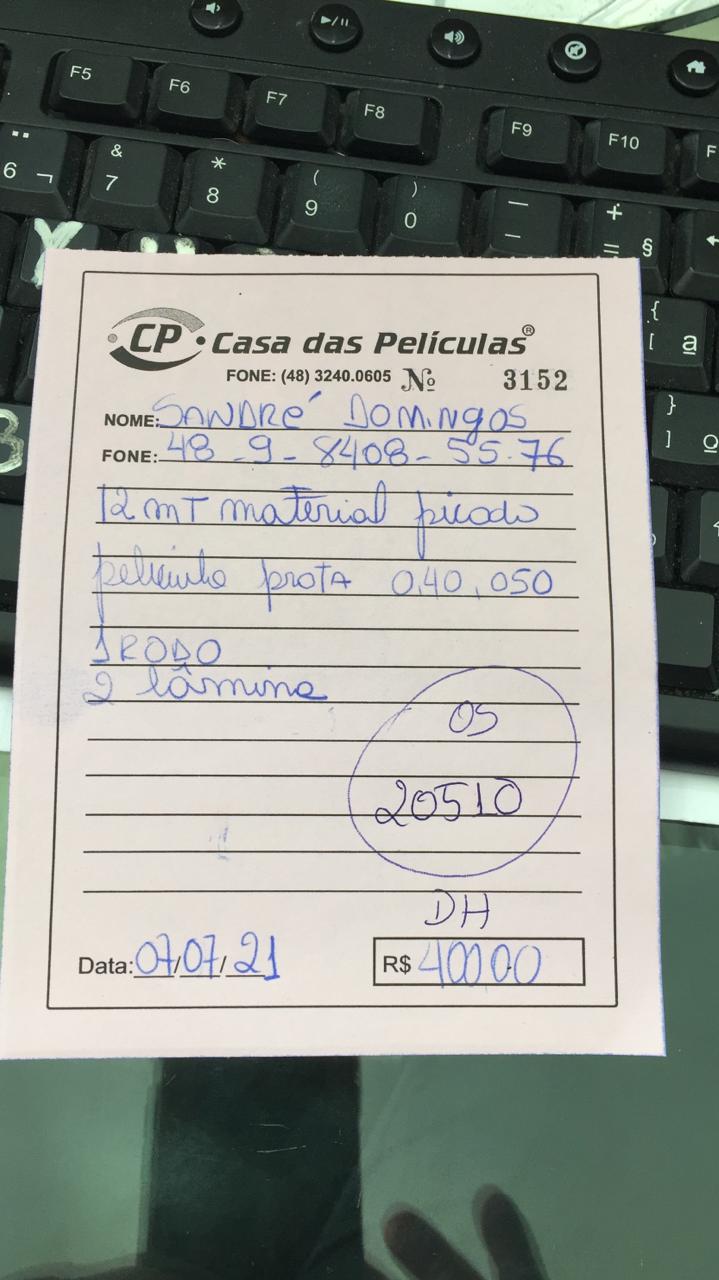 F5 F6 F7 F8 F9 F10 F
6 ¬ & 7 * 8 ( 9 ) 0 — – + = §
Y
{ [ ª
} ] º
CP Casa das Películas®
FONE: (48) 3240.0605 Nº 3152
NOME: SANDRÉ DOMINGOS
FONE: 48-9-8408-55.76
12 mT material picado
película prata 0,40,050
1 RODO
2 lâmina
OS
20510
DH
Data: 07/07/21 R$ 400.00